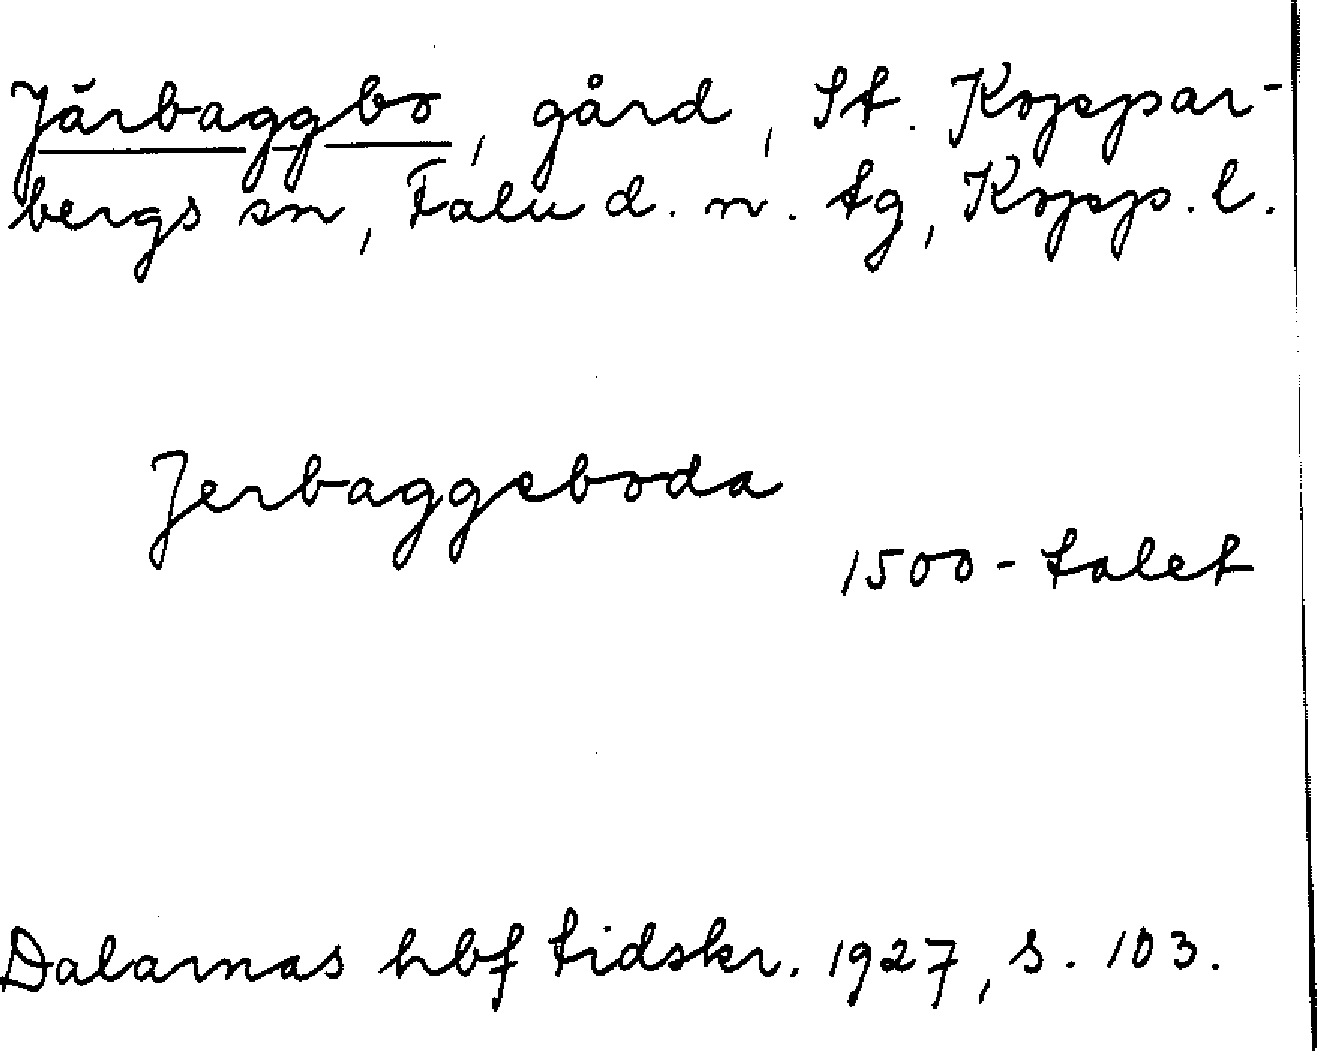 Järbaggbo, gård, St. Koppar-
bergs sn, Falu d. n. tg, Kopp. l.
Jerbaggeboda
1500-talet
Dalarnas hbf tidskr. 1927, s. 103.